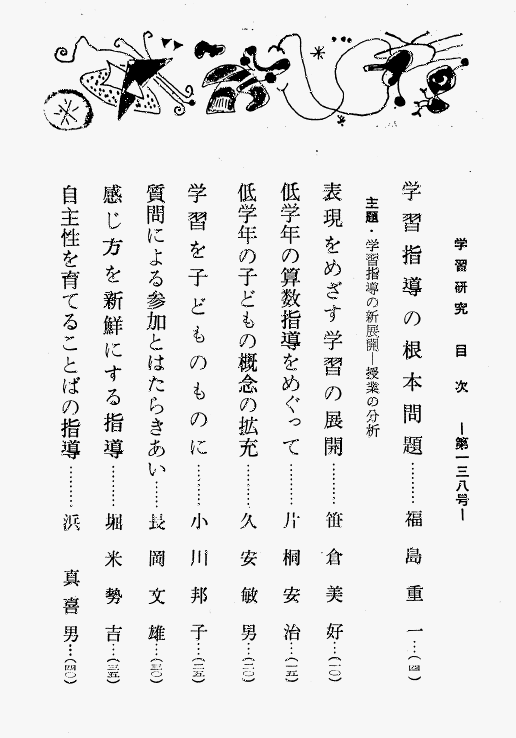 学習研究　目次　―第一三八号―
学習指導の根本問題………福島重一…（四）
主題・学習指導の新展開―授業の分析
表現をめざす学習の展開………笹倉美好…（一〇）
低学年の算数指導をめぐって………片桐安治…（一五）
低学年の子どもの概念の拡充………久安敏男…（二〇）
学習を子どものものに………小川邦子…（二五）
質問による参加とはたらきあい……長岡文雄…（三〇）
感じ方を新鮮にする指導………堀米勢吉…（三五）
自主性を育てることばの指導………浜　真喜男…（四〇）